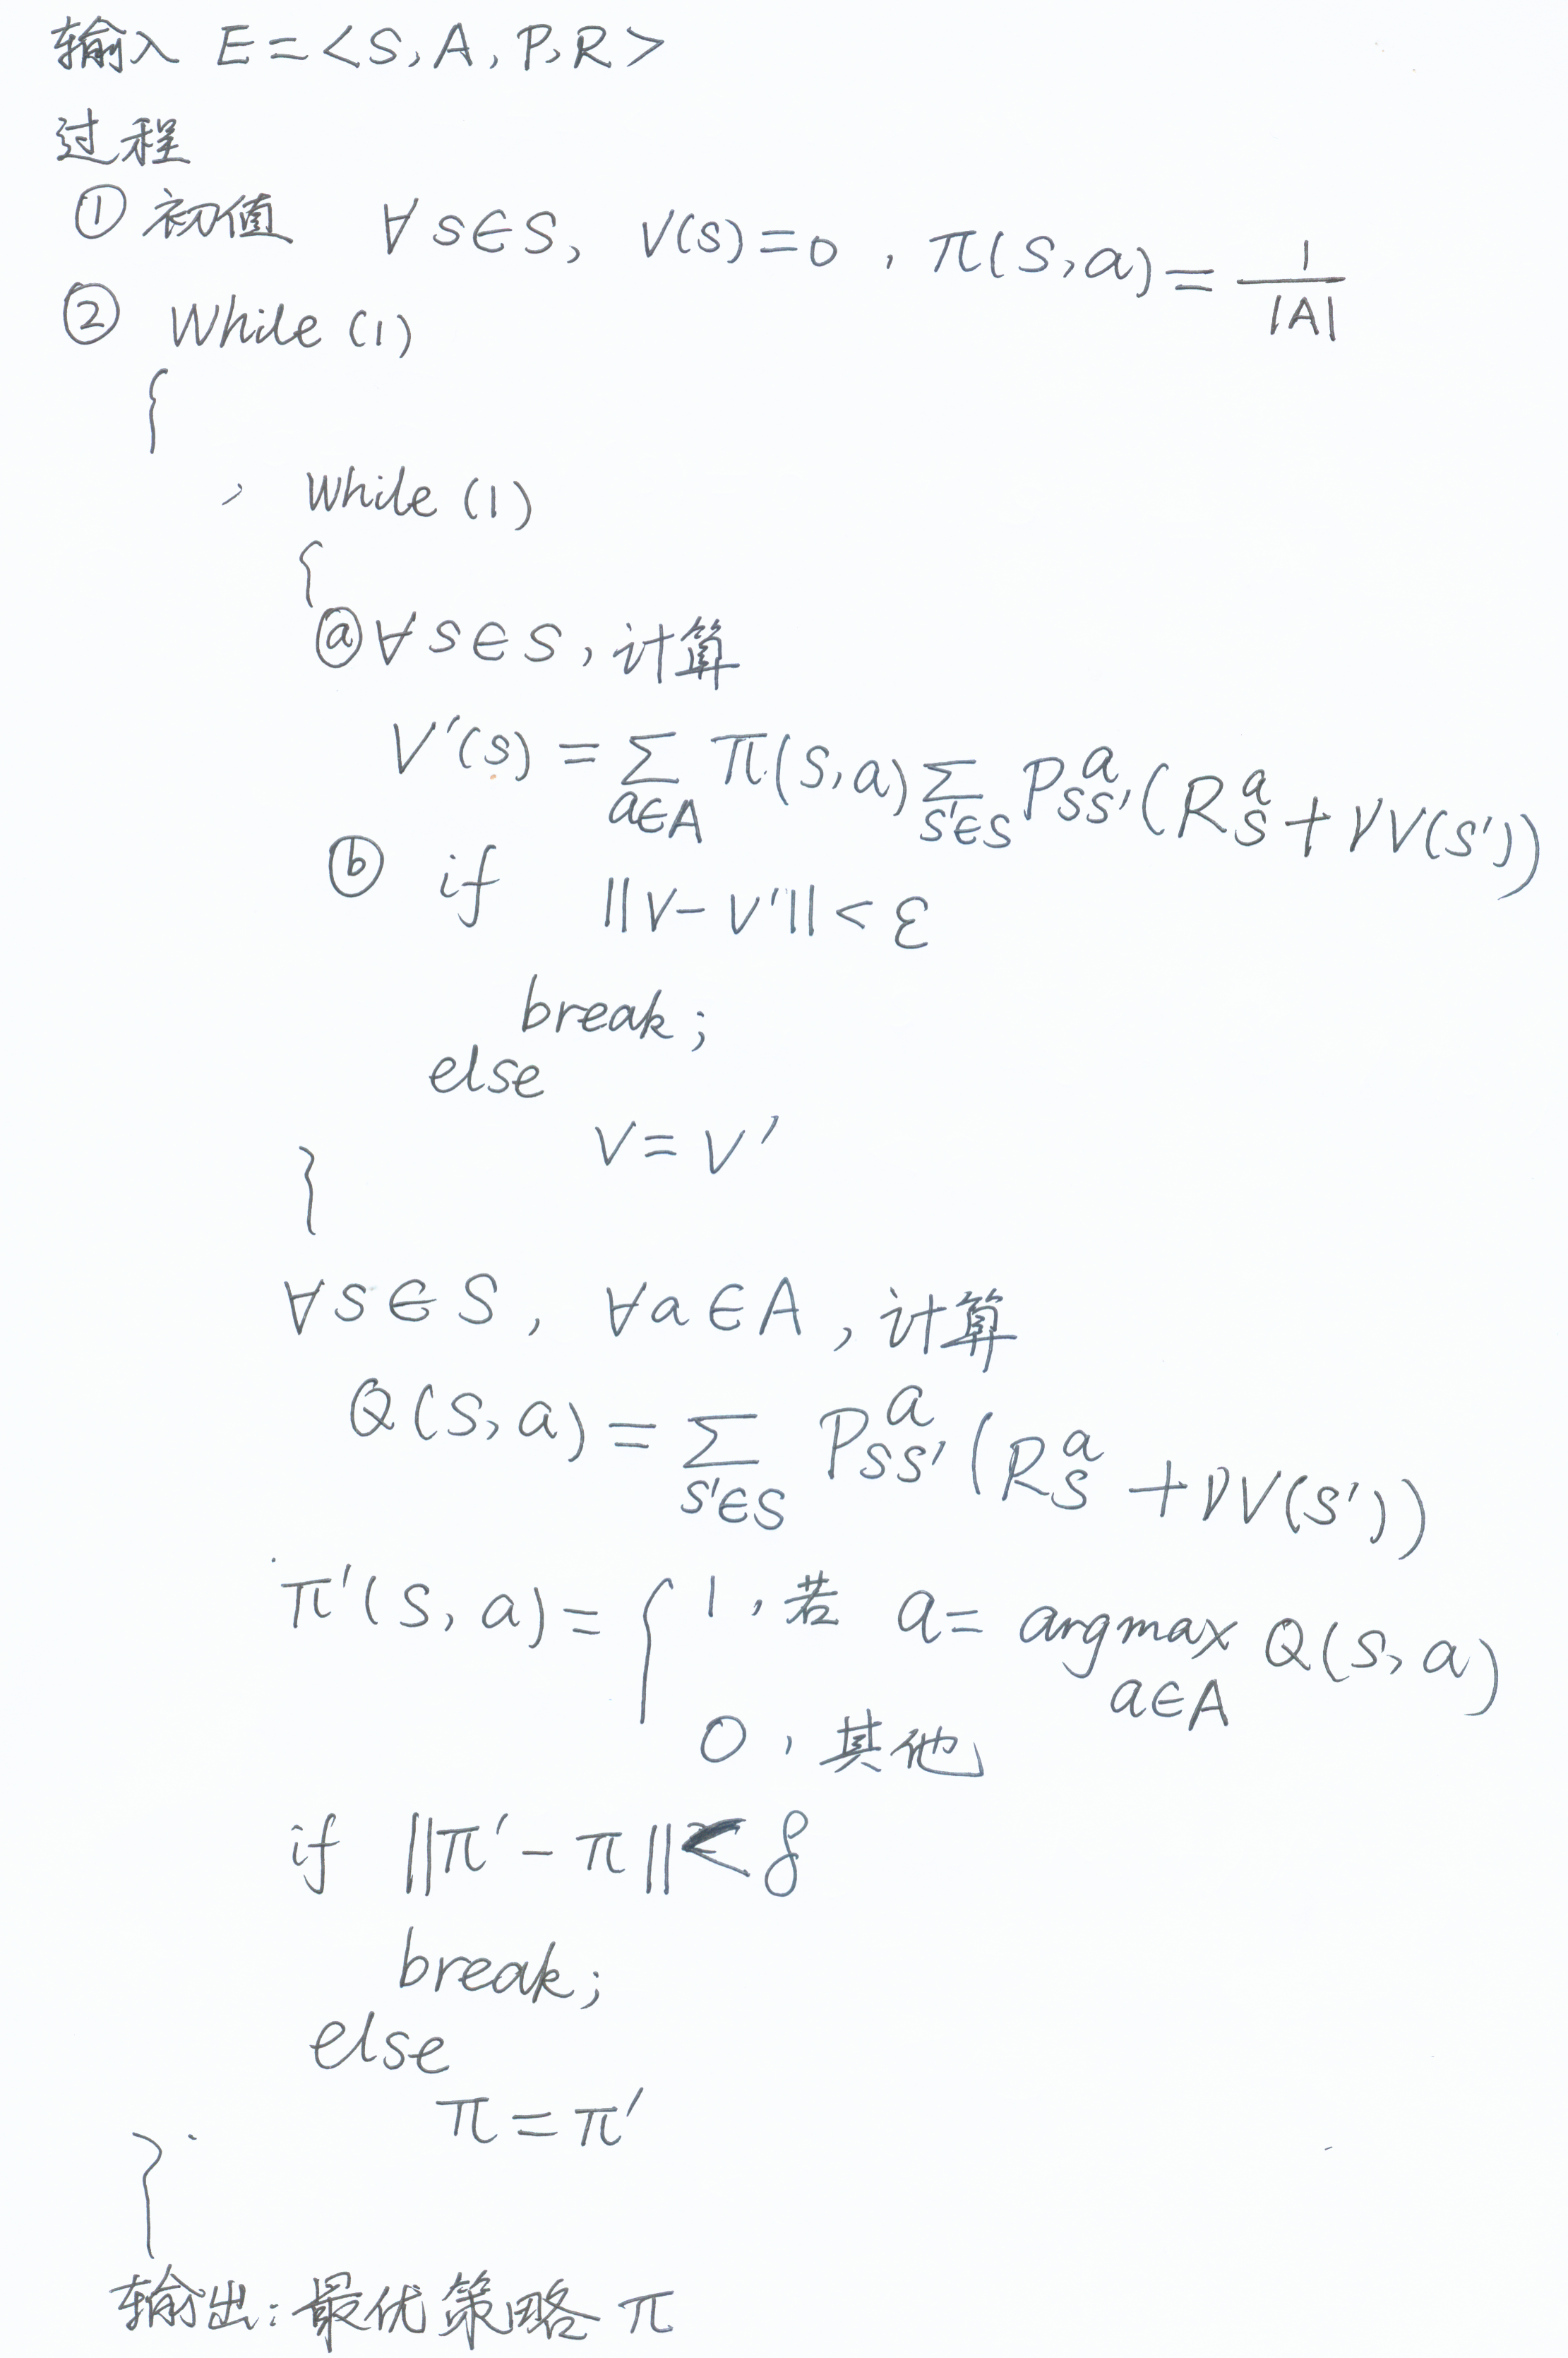 输入 E=<S,A,P,R>
过程
① 初值 ∀s∈S, V(s)=0, π(s,a)=1/|A|
② While(1)
{
While(1)
{
ⓐ ∀s∈S, 计算
V'(s)=∑_{a∈A} π(s,a) ∑_{s'∈S} P_{ss'}^a (R_s^a+γV(s'))
ⓑ if ||V-V'||<ε
break;
else
V=V'
}
∀s∈S, ∀a∈A, 计算
Q(s,a)=∑_{s'∈S} P_{ss'}^a (R_s^a+γV(s'))
π'(s,a)={ 1, 若 a=argmax_{a∈A} Q(s,a)
0, 其他
if ||π'-π||<δ
break;
else
π=π'
}
输出:最优策略 π